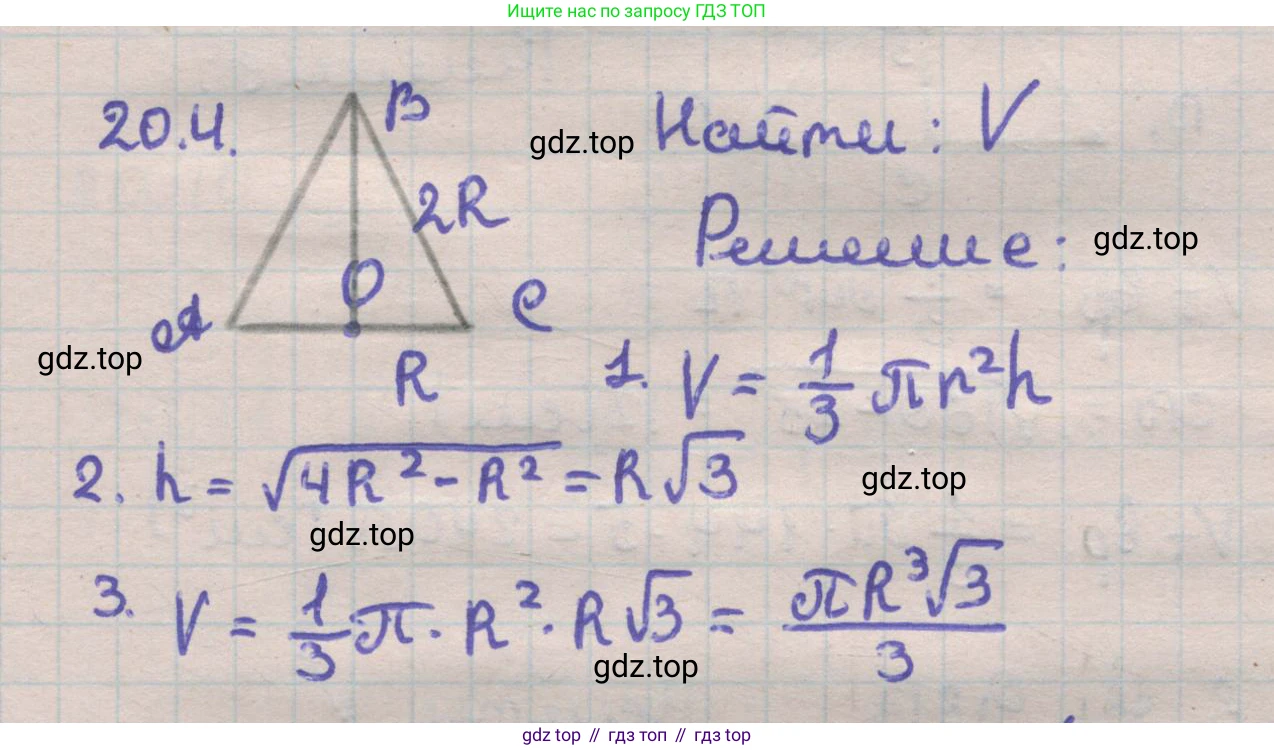 Ищите нас по запросу ГДЗ ТОП
20.4.
B
gdz.top
Найти: V
2R
Решение:
gdz.top
O
A
C
gdz.top
R
1. V = 1/3 πr²h
2. h = √(4R² - R²) = R√3
gdz.top
gdz.top
3. V = 1/3 π · R² · R√3 = πR³√3/3
gdz.top
gdz top // гдз топ // гдз top